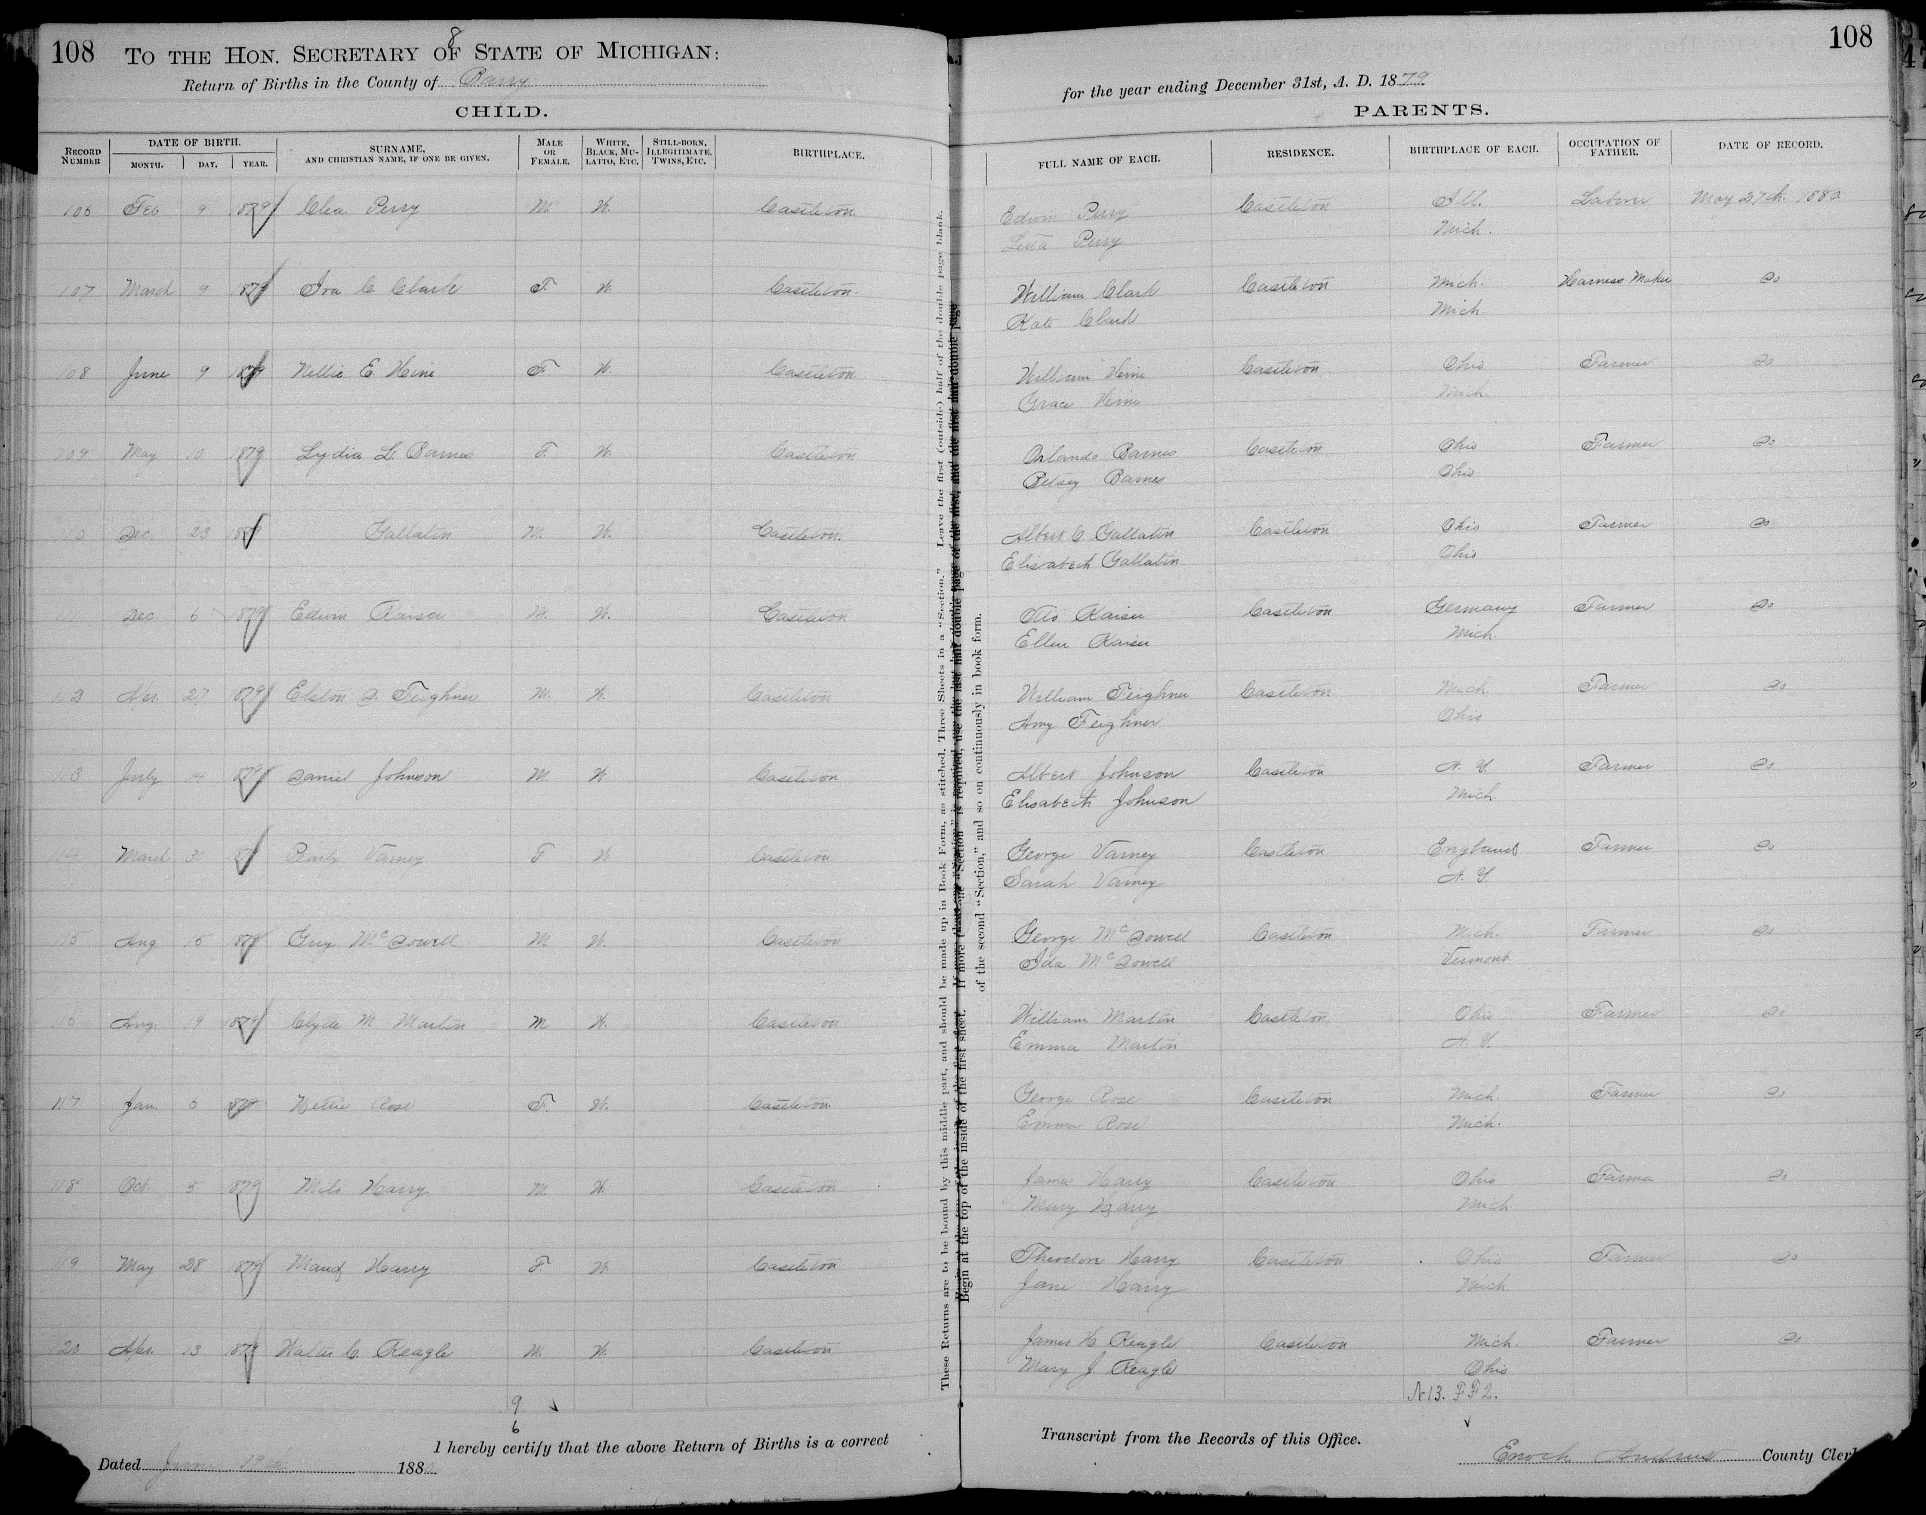 108 TO THE HON. SECRETARY OF STATE OF MICHIGAN:
8
Return of Births in the County of Barry
CHILD.
RECORD NUMBER
DATE OF BIRTH.
MONTH. DAY. YEAR.
SURNAME, AND CHRISTIAN NAME, IF ONE BE GIVEN.
MALE OR FEMALE.
WHITE, BLACK, MULATTO, ETC.
STILL-BORN, ILLEGITIMATE, TWINS, ETC.
BIRTHPLACE.
106 Feb 9 1879 Perry M. W. Castleton.
107 March 9 1879 Ira C Clark F. W. Castleton.
108 June 9 1879 Nellie E. Heine F. W. Castleton
109 May 10 1879 Lydia L. Barnes F. W. Castleton
110 Dec. 23 Gallatin M. W. Castleton.
111 Dec 6 1879 Edwin Kaiser M. W. Castleton
112 Apr. 27 1879 Elston D. Feighner M. W. Castleton
113 July 14 1879 Daniel Johnson M. W. Castleton
114 March Varney F W Castleton
115 Aug 15 1879 Guy McDowell M. W. Castleton
116 Aug. 19 1879 Clyde M Martin M W. Castleton
117 Jan. 5 Nettie Rose F. W. Castleton
118 Oct. 5 1879 Milo Harry M. W. Castleton
119 May 28 1879 Maud Harry F. W. Castleton
120 Apr. 13 1879 Walter C. Reagle M. W. Castleton
9
6
I hereby certify that the above Return of Births is a correct
Dated June 19th 188
These Returns are to be bound by this middle part, and should be made up in Book Form, as stitched. Three Sheets in a "Section." Leave the first (outside) half of the double page blank.
Begin at the top of the inside of the first sheet. If more than one "Section" is required, use the last half double page of the first, and the first half double page
of the second "Section," and so on continuously in book form.
108
for the year ending December 31st, A. D. 1879
PARENTS.
FULL NAME OF EACH.
RESIDENCE.
BIRTHPLACE OF EACH.
OCCUPATION OF FATHER.
DATE OF RECORD.
Edwin Perry Castleton Ill. Laborer May 27th. 1880
Perry Mich.
William Clark Castleton Mich. Harness Maker Do
Kate Clark Mich.
William Heine Castleton Ohio Farmer Do
Grace Heine Mich.
Orlando Barnes Castleton Ohio Farmer Do
Betsey Barnes Ohio
Albert C. Gallatin Castleton Ohio Farmer Do
Elisabeth Gallatin Ohio
Otto Kaiser Castleton Germany Farmer Do
Ellen Kaiser Mich
William Feighner Castleton Mich Farmer Do
Amy Feighner Ohio
Albert Johnson Castleton N. Y. Farmer Do
Elisabeth Johnson Mich
George Varney Castleton England Farmer Do
Sarah Varney N. Y.
George McDowell Castleton Mich. Farmer Do
Ida McDowell Vermont
William Martin Castleton Ohio Farmer Do
Emma Martin N. Y.
George Rose Castleton Mich. Farmer Do
Emma Rose Mich.
James Harry Castleton Ohio Farmer Do
Mary Harry Mich
Theodore Harry Castleton Ohio Farmer Do
Jane Harry Mich
James H. Reagle Castleton Mich. Farmer Do
Mary J Reagle Ohio
N13. FF2.
Transcript from the Records of this Office.
Enoch Andrus County Clerk